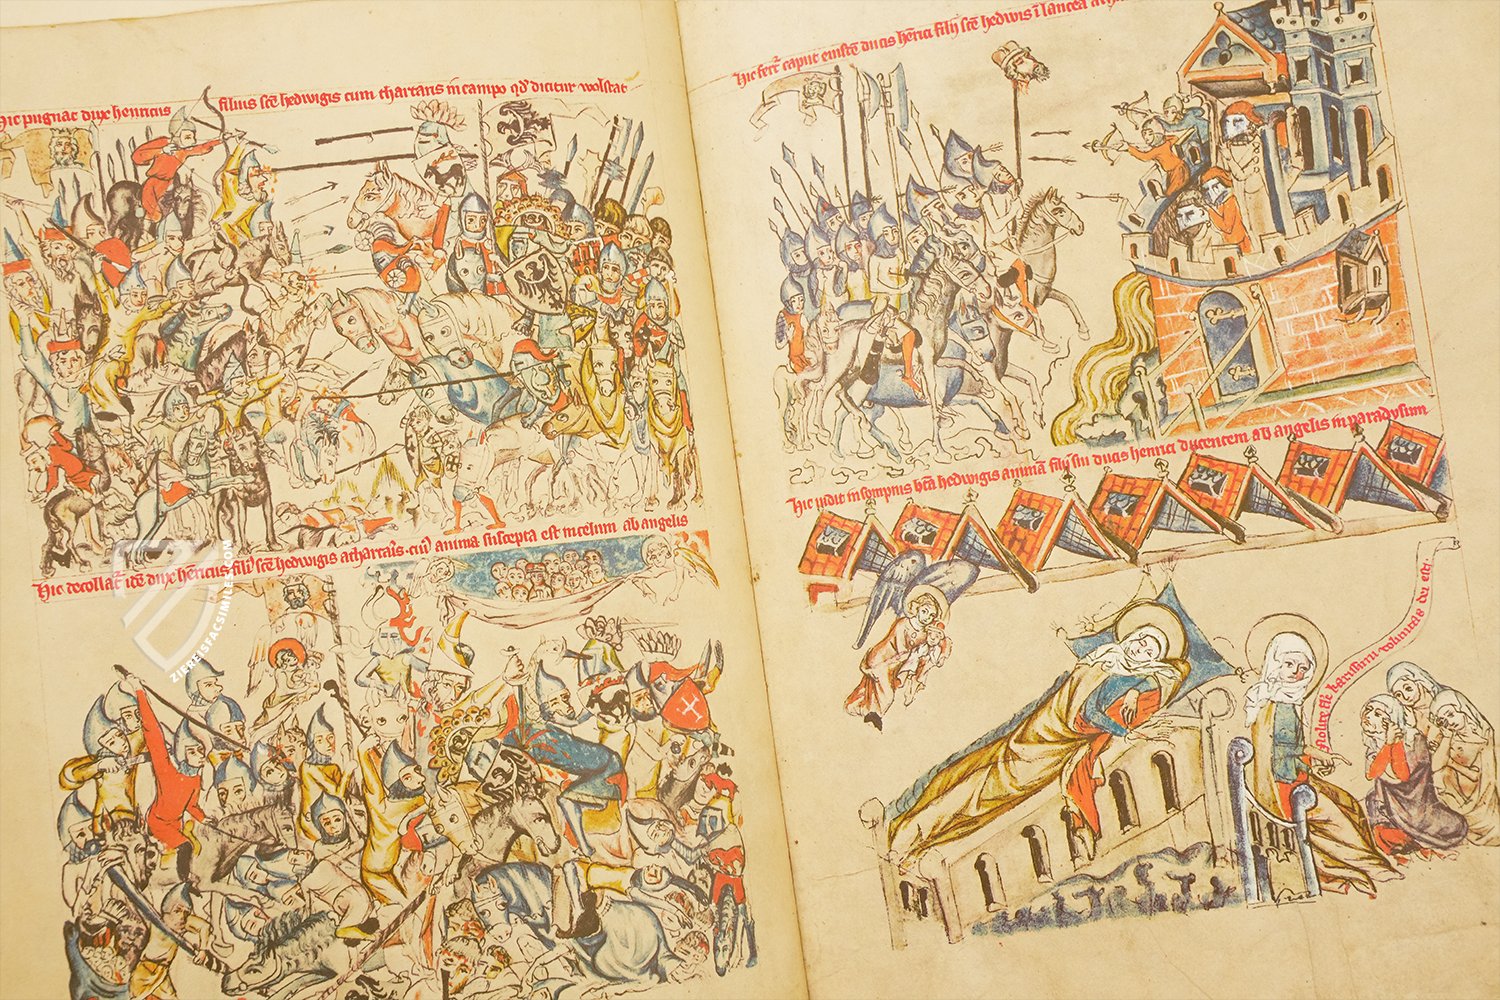 Hic pugnat dux henricus filius sce hedwigis cum thartaris in campo qd dicitur wolstat
Hic decollat' ite dux henricus filius sce hedwigis a thartaris cui' anima suscepta est in celum ab angelis
Hic fert' caput eiusde ducis henrici filij sce hedwigis i lancea
Hic vidit in sompnis bta hedwigis anima filij sui ducis henrici ducentem ab angelis in paradysum
Nolite filie karissime voluntas dei est
ZIEREISFACSIMILES.COM